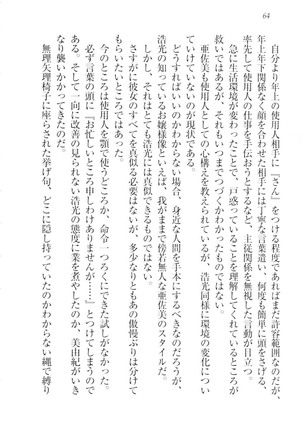 64
自分より年上の使用人相手に『さん』をつける程度であればまだ許容範囲なのだが、
年上年下関係なく顔を合わせた相手には丁寧な言葉遣い、何度も簡単に頭をさげる、
率先して使用人の仕事を手伝おうとするなど、主従関係を無視した言動が目立つ。
急に生活環境が変わったことで、戸惑っているだけと理解してくれているところが
救いではあるが、それもいつまでつづくかわかったものではない。
亜佐美も使用人としての心構えを教えているのだが、浩光同様に環境の変化につい
ていけていないのが現状である。
どうすればいいのかわからない場合、身近な人間を手本にするべきなのだろうが、
浩光の知っているお嬢様像といえば、我がままで傍若無人な亜佐美のスタイルだ。
しかし、それはとても浩光には真似できるものではない。
さすがに彼女のすべてを真似する必要はないが、多少なりともあの傲慢ぶりは分けて
もらいたいところではあった。
今のところは使用人を顎で使うどころか、命令一つろくにできた試しがなかった。
必ず言葉の頭に『お忙しいところ申しわけありませんが……』とつけてしまうのであ
る。そして、一向に改善の見られない浩光の態度に業を煮やしたのか、美由紀がいき
なり襲いかかってきたのだ。
無理矢理椅子に座らされた挙げ句、どこに隠し持っていたのかわからない縄で縛り